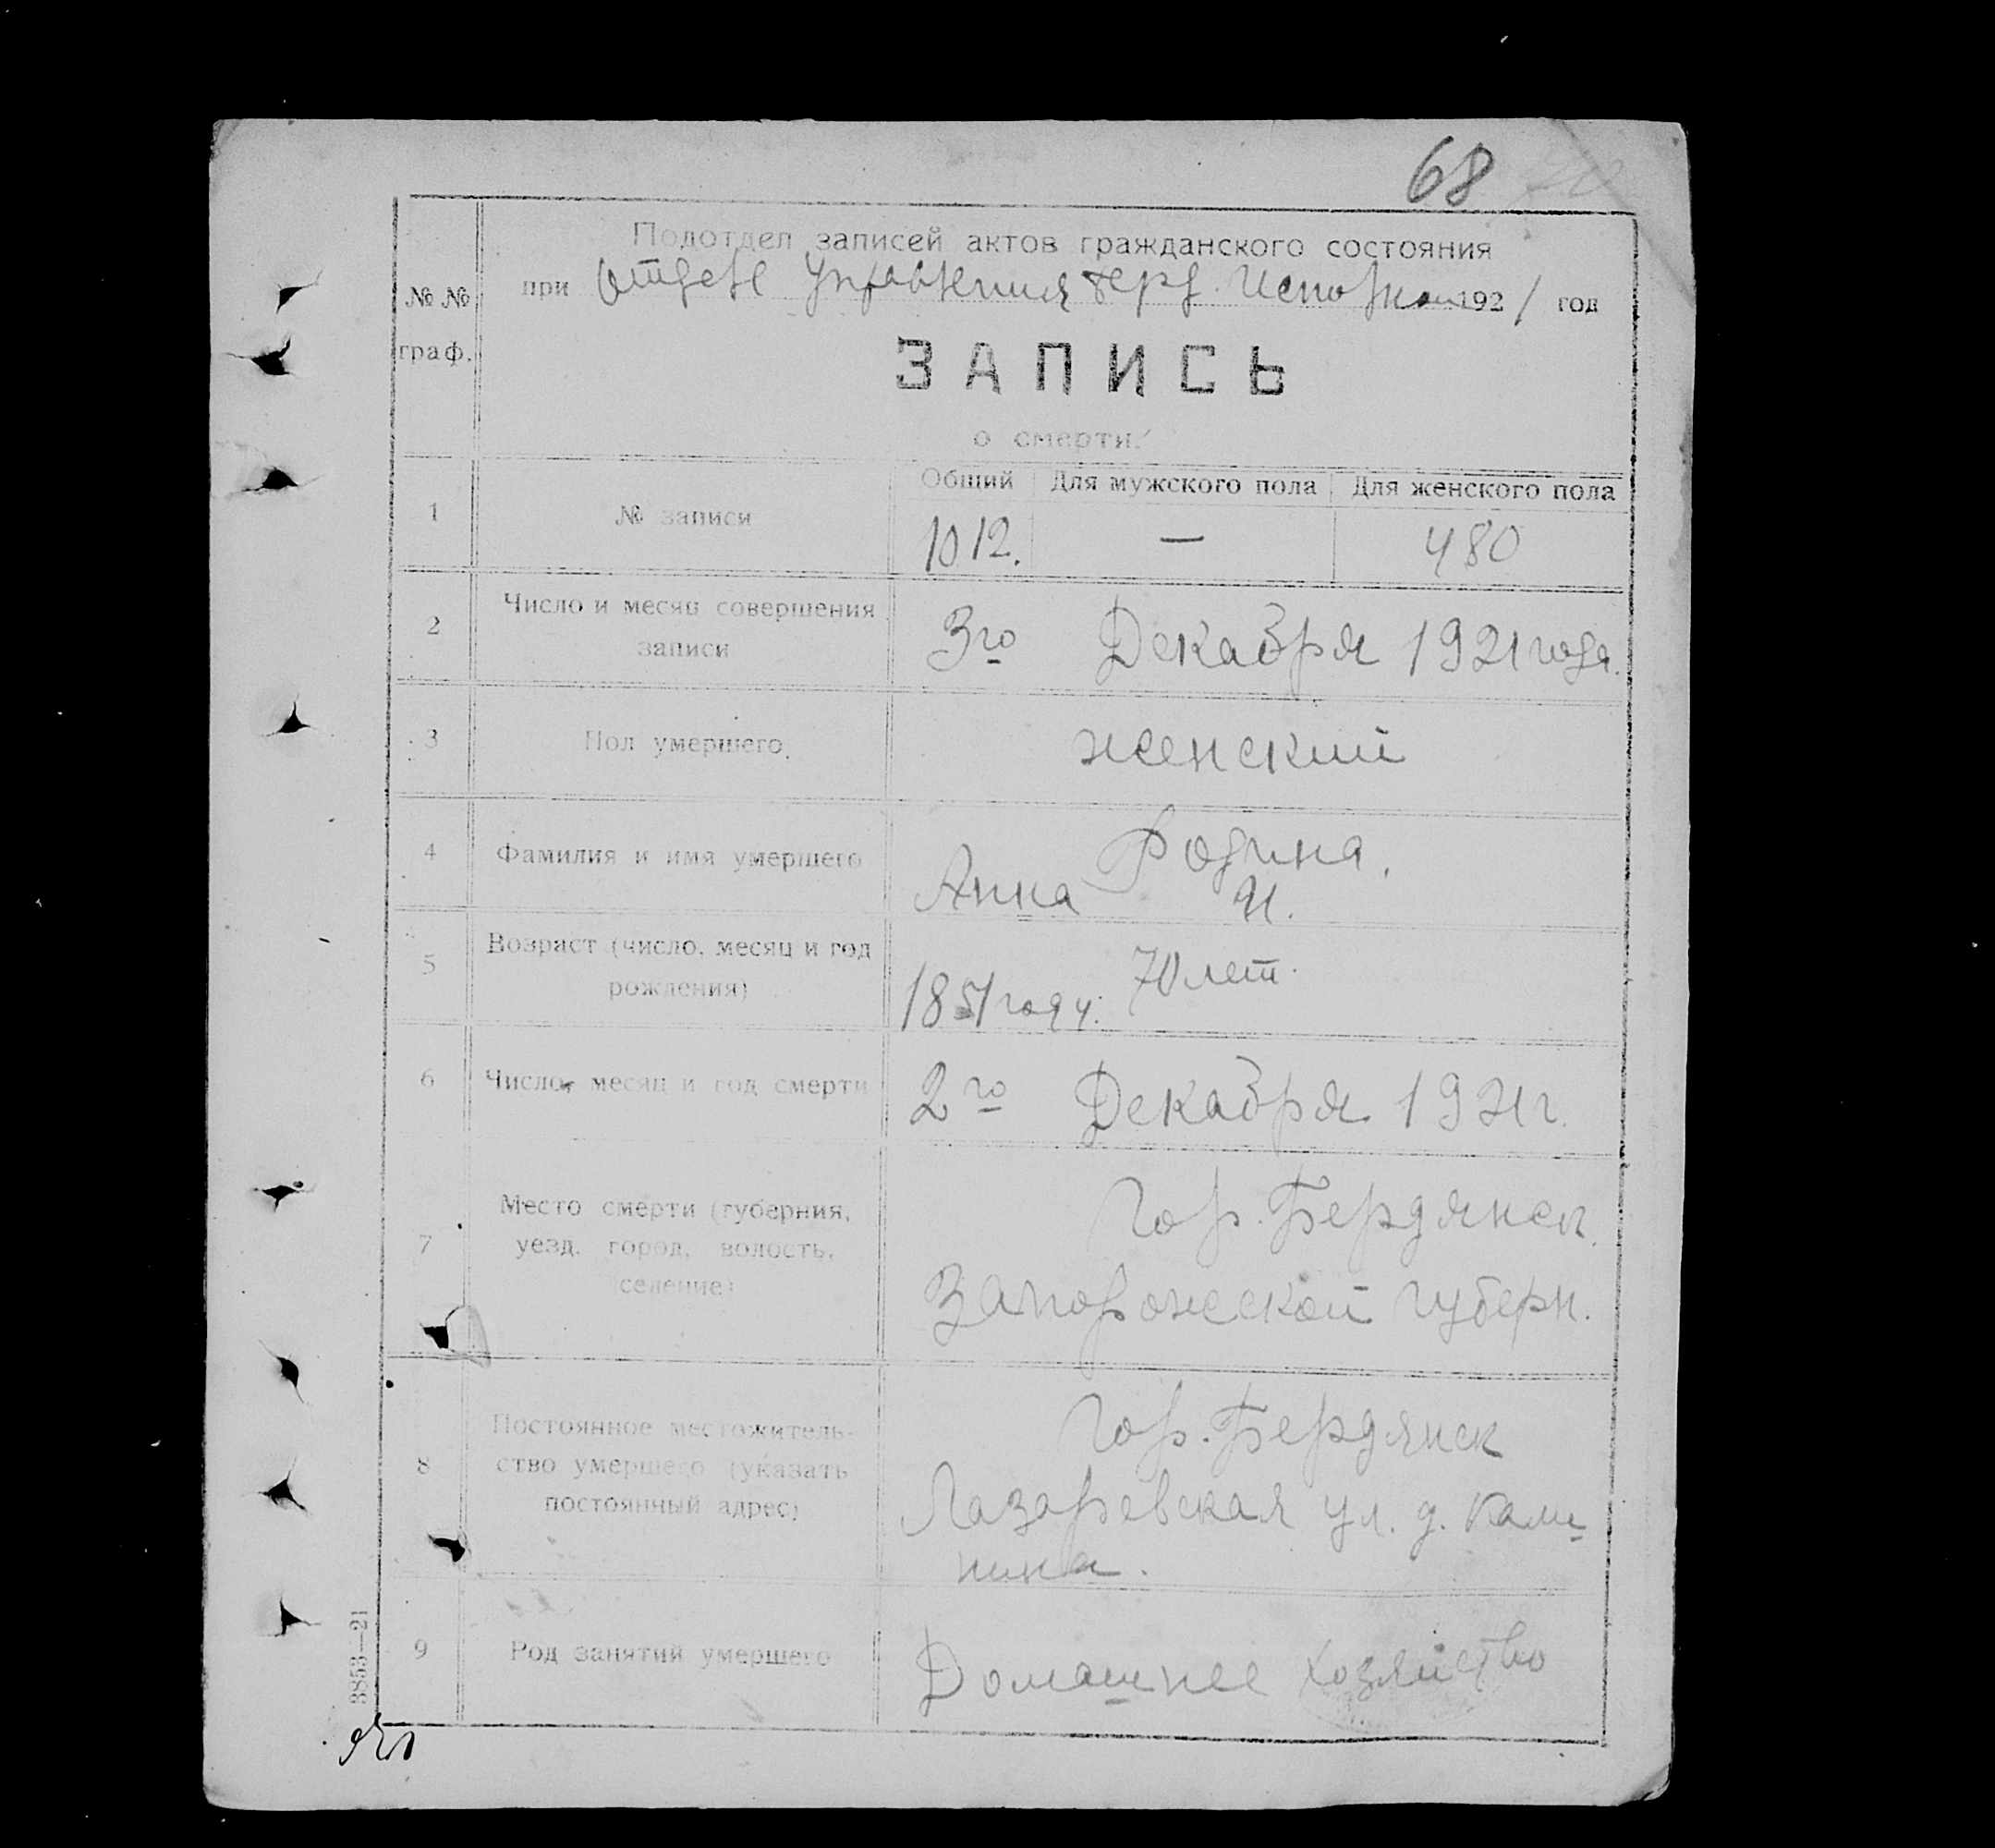 68
Подотдел записей актов гражданского состояния
№ № граф.
при Отделе Управления Берд. Исполком 1921 год
ЗАПИСЬ
о смерти.
Общий Для мужского пола Для женского пола
1 № записи 1012. — 480
2 Число и месяц совершения
записи
3го Декабря 1921 года.
3 Пол умершего. женский
4 Фамилия и имя умершего
Родина.
Анна И.
5 Возраст (число, месяц и год
рождения)
70 лет.
1851 году.
6 Число, месяц и год смерти 2го Декабря 1921 г.
7 Место смерти (губерния,
уезд, город, волость,
селение)
Гор. Бердянск.
Запорожской губерн.
8 Постоянное местожитель-
ство умершего (указать
постоянный адрес)
Гор. Бердянск
Лазаревская ул. д. Кали
нина.
9 Род занятий умершего Домашнее хозяйство
3853—21